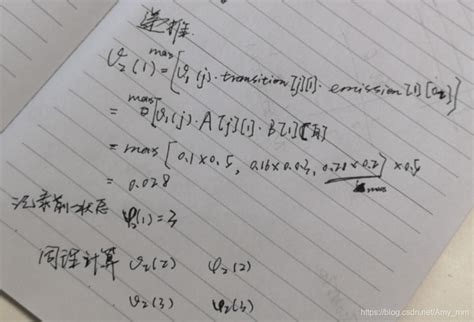 递推.
max
υ₂(1) = [υ₁(j)·transition[j][i]·emission[i][o₂]]
max
= [υ₁(j)·A[j][i]·B[i][]]
= max [0.1×0.5, 0.16×0.03, 0.28×0.2]×0.5
max
= 0.028
记录前一状态 φ₂(1)=3
同理计算 υ₂(2) φ₂(2)
υ₂(3) φ₂(3)
https://blog.csdn.net/Amy_mm